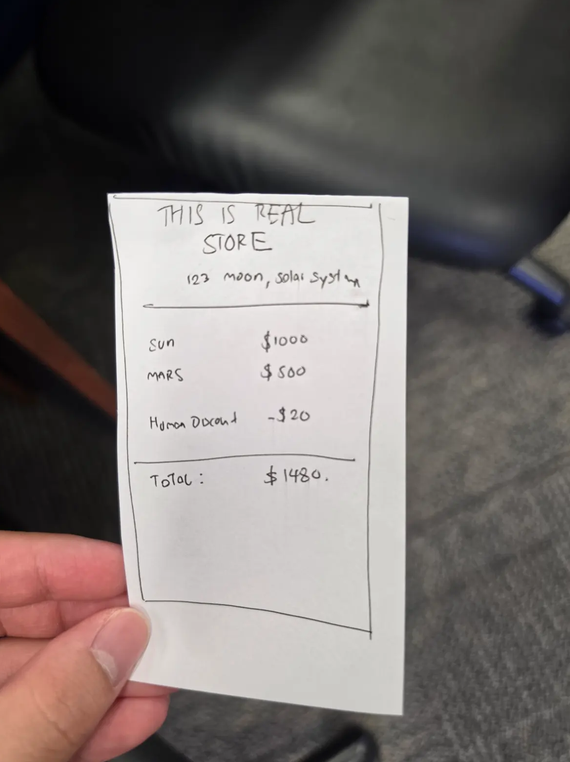 THIS IS REAL
STORE
123 moon, solar system
Sun $1000
MARS $500
Human Discount -$20
TOTAL: $1480.